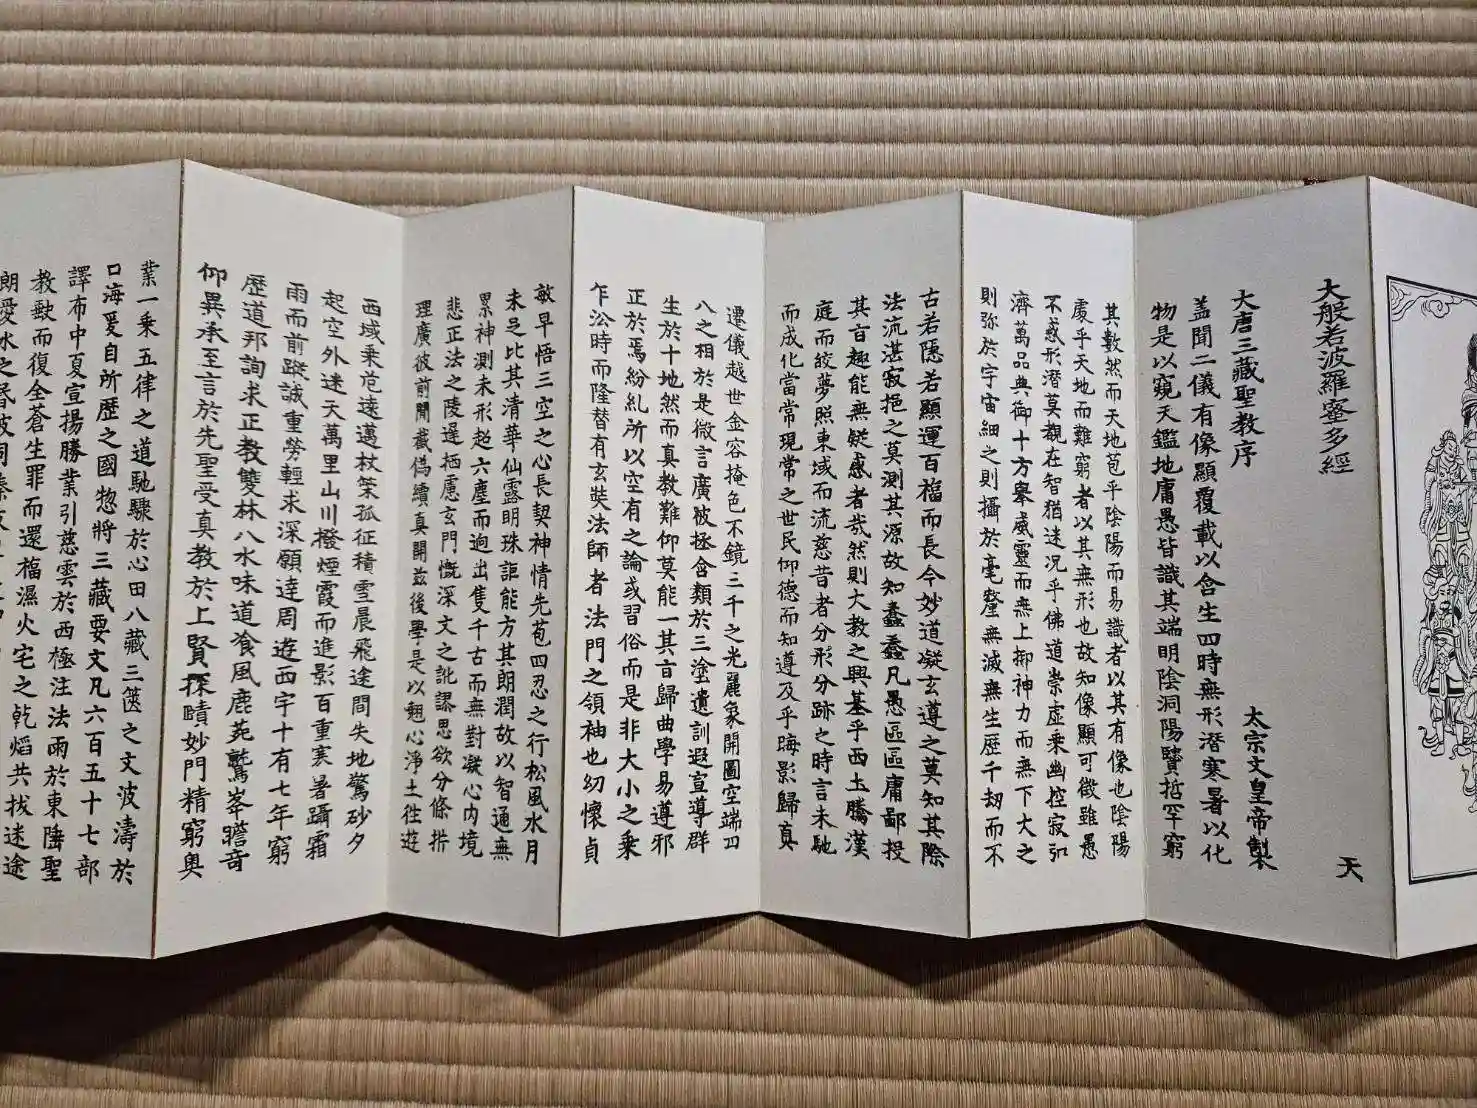 大般若波羅蜜多經 天
大唐三藏聖教序
太宗文皇帝製
蓋聞二儀有像顯覆載以含生四時無形潛寒暑以化
物是以窺天鑑地庸愚皆識其端明陰洞陽賢哲罕窮
其數然而天地苞乎陰陽而易識者以其有像也陰陽
處乎天地而難窮者以其無形也故知像顯可徵雖愚
不惑形潛莫覩在智猶迷況乎佛道崇虛乘幽控寂弘
濟萬品典御十方舉威靈而無上抑神力而無下大之
則彌於宇宙細之則攝於毫釐無滅無生歷千劫而不
古若隱若顯運百福而長今妙道凝玄遵之莫知其際
法流湛寂挹之莫測其源故知蠢蠢凡愚區區庸鄙投
其旨趣能無疑惑者哉然則大教之興基乎西土騰漢
庭而皎夢照東域而流慈昔者分形分跡之時言未馳
而成化當常現常之世民仰德而知遵及乎晦影歸真
遷儀越世金容掩色不鏡三千之光麗象開圖空端四
八之相於是微言廣被拯含類於三塗遺訓遐宣導群
生於十地然而真教難仰莫能一其旨歸曲學易遵邪
正於焉紛糺所以空有之論或習俗而是非大小之乘
乍訟時而隆替有玄奘法師者法門之領袖也幼懷貞
敏早悟三空之心長契神情先苞四忍之行松風水月
未足比其清華仙露明珠詎能方其朗潤故以智通無
累神測未形超六塵而迥出隻千古而無對凝心內境
悲正法之陵遲栖慮玄門慨深文之訛謬思欲分條析
理廣彼前聞截偽續真開茲後學是以翹心淨土往遊
西域乘危遠邁杖策孤征積雪晨飛途間失地驚砂夕
起空外迷天萬里山川撥煙霞而進影百重寒暑躡霜
雨而前蹤誠重勞輕求深願達周遊西宇十有七年窮
歷道邦詢求正教雙林八水味道飡風鹿菀鷲峯瞻奇
仰異承至言於先聖受真教於上賢探賾妙門精窮奧
業一乘五律之道馳驟於心田八藏三篋之文波濤於
口海爰自所歷之國惣將三藏要文凡六百五十七部
譯布中夏宣揚勝業引慈雲於西極注法雨於東陲聖
教缺而復全蒼生罪而還福濕火宅之乾焰共拔迷途
朗愛水之昏波同